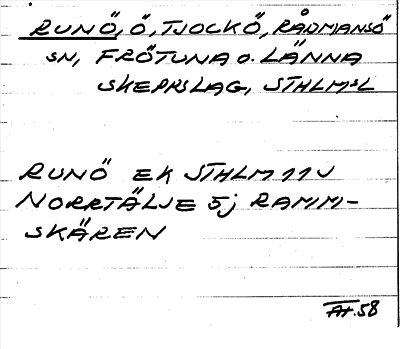 RUNÖ, Ö, TJOCKÖ, RÅDMANSÖ
SN, FRÖTUNA O. LÄNNA
SKEPPSLAG, STHLMSL
RUNÖ EK STHLM 11V
NORRTÄLJE 5j RAMM-
SKÄREN
AH.58